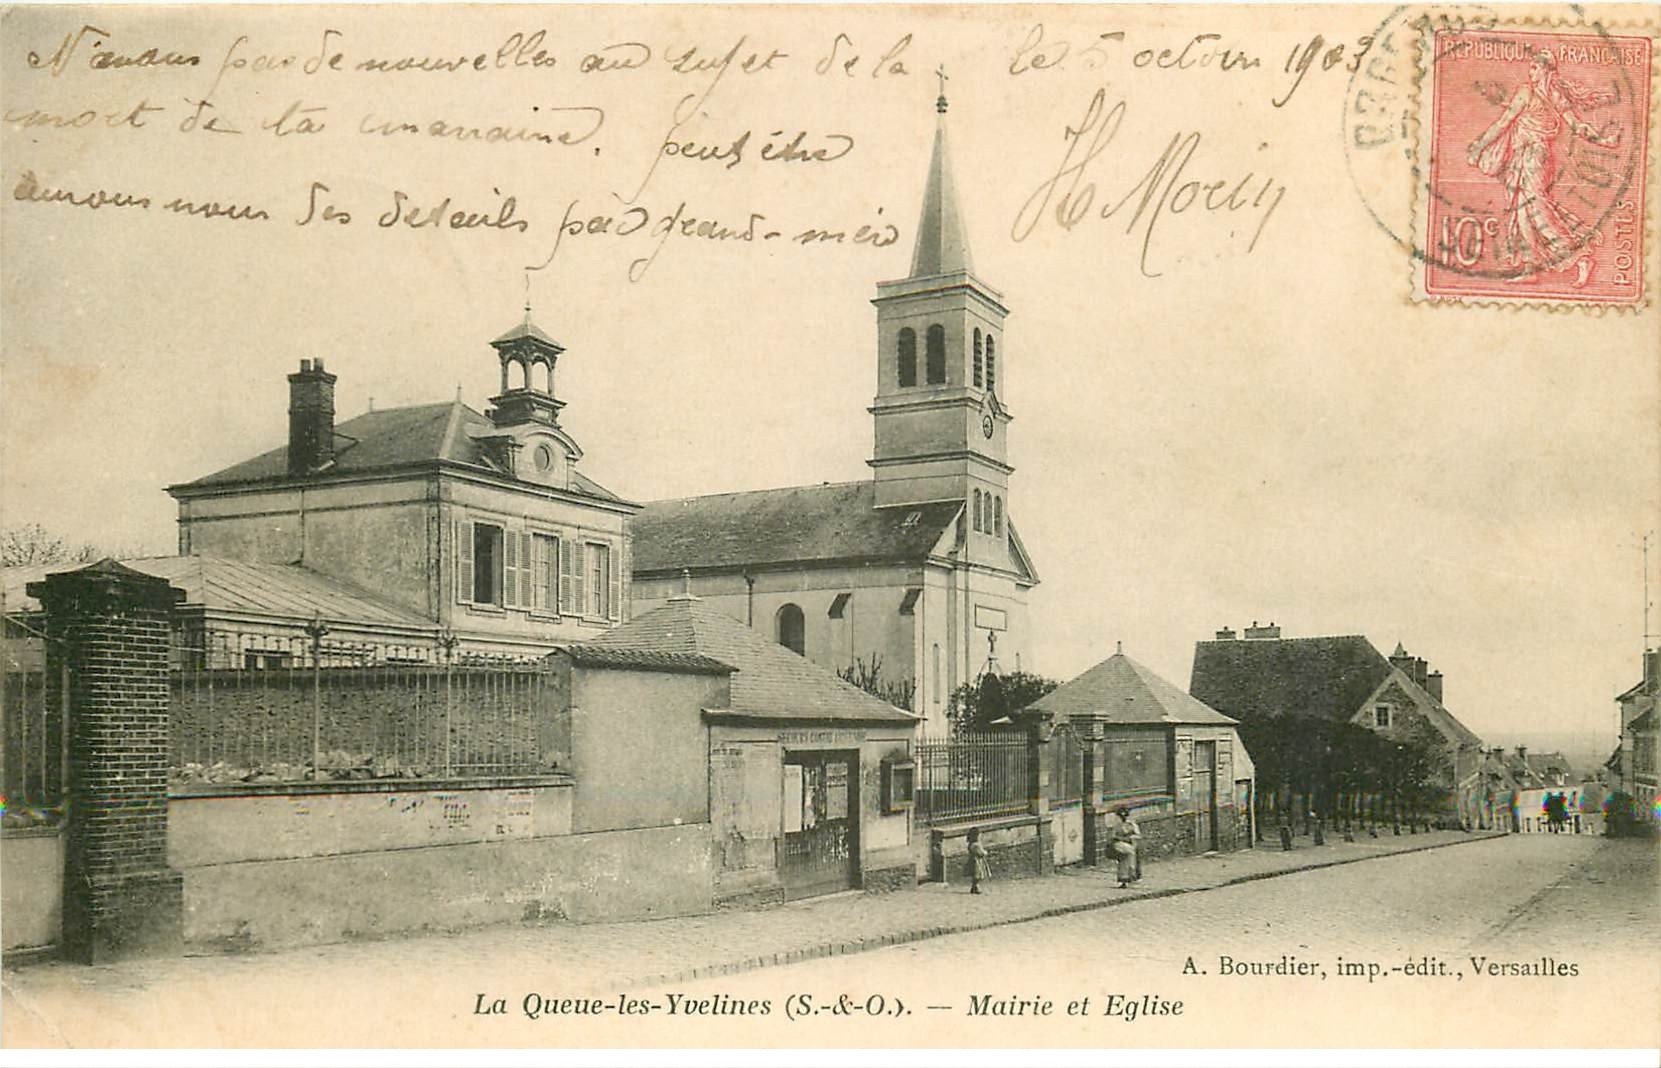 N'avons pas de nouvelles au sujet de la
mort de ta marraine. peut être
aurons nous des details par grand-mère
le 5 octobre 1903
H Morin
REPUBLIQUE FRANÇAISE
10c
POSTES
A. Bourdier, imp.-édit., Versailles
La Queue-les-Yvelines (S.-&-O.). — Mairie et Eglise